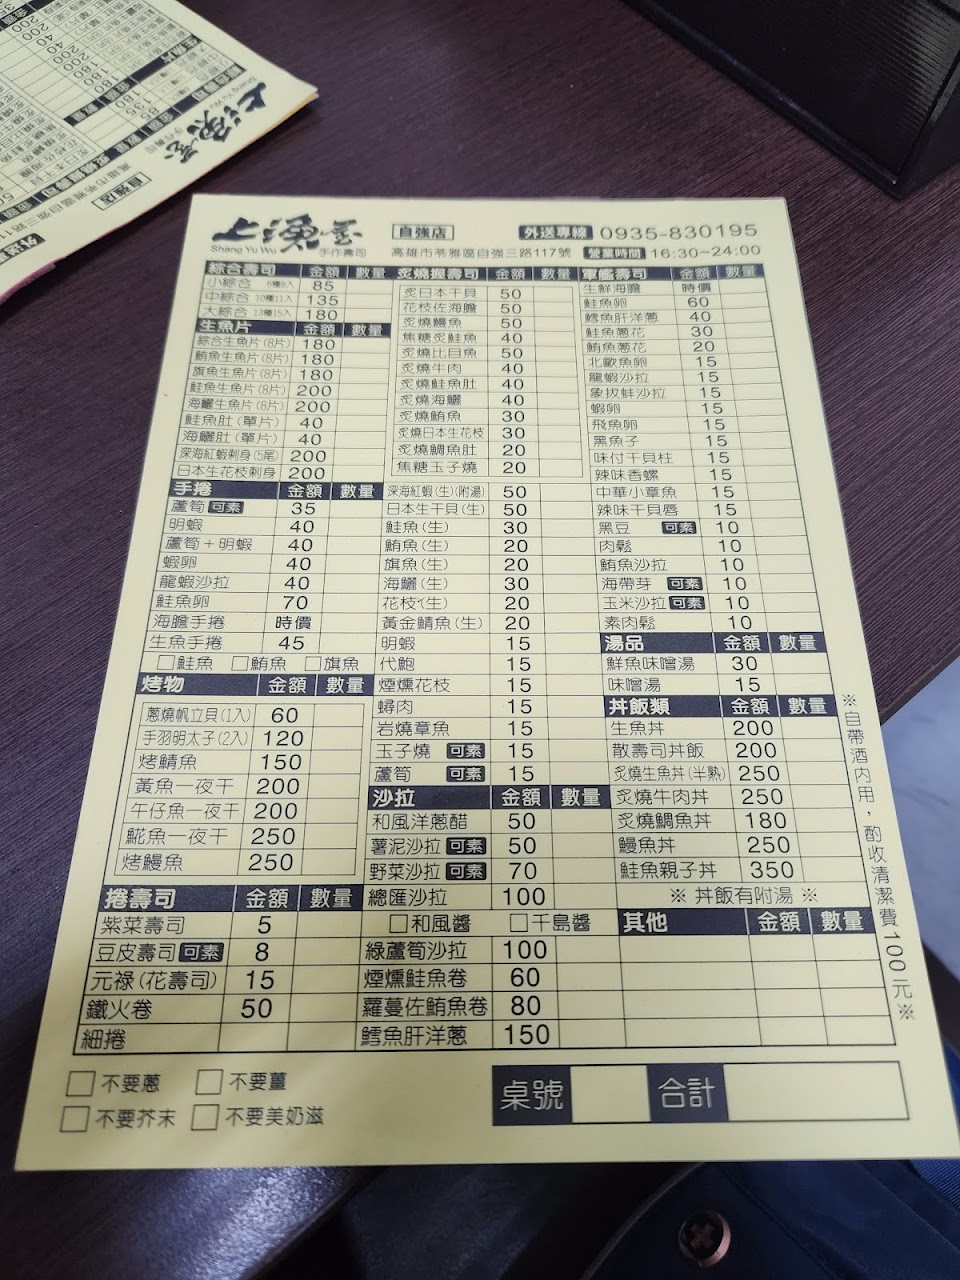 上漁屋
Shang Yu Wu 手作壽司
自強店
外送專線 0935-830195
高雄市苓雅區自強三路117號 營業時間 16:30~24:00
綜合壽司 金額 數量
小綜合 6種8入 85
中綜合 10種11入 135
大綜合 13種15入 180
生魚片 金額 數量
綜合生魚片(8片) 180
鮪魚生魚片(8片) 180
旗魚生魚片(8片) 180
鮭魚生魚片(8片) 200
海鱺生魚片(8片) 200
鮭魚肚(單片) 40
海鱺肚(單片) 40
深海紅蝦刺身(5尾) 200
日本生花枝刺身 200
手捲 金額 數量
蘆筍 可素 35
明蝦 40
蘆筍+明蝦 40
蝦卵 40
龍蝦沙拉 40
鮭魚卵 70
海膽手捲 時價
生魚手捲 45
□鮭魚 □鮪魚 □旗魚
烤物 金額 數量
蔥燒帆立貝(1入) 60
手羽明太子(2入) 120
烤鯖魚 150
黃魚一夜干 200
午仔魚一夜干 200
鯤魚一夜干 250
烤鰻魚 250
捲壽司 金額 數量
紫菜壽司 5
豆皮壽司 可素 8
元祿(花壽司) 15
鐵火卷 50
細捲
炙燒握壽司 金額 數量
炙日本干貝 50
花枝佐海膽 50
炙燒鰻魚 50
焦糖炙鮭魚 40
炙燒比目魚 50
炙燒牛肉 40
炙燒鮭魚肚 40
炙燒海鱺 40
炙燒鮪魚 30
炙燒日本生花枝 30
炙燒鯛魚肚 20
焦糖玉子燒 20
深海紅蝦(生)(附湯) 50
日本生干貝(生) 50
鮭魚(生) 30
鮪魚(生) 20
旗魚(生) 20
海鱺(生) 30
花枝(生) 20
黃金鯖魚(生) 20
明蝦 15
代鮑 15
煙燻花枝 15
蟳肉 15
岩燒章魚 15
玉子燒 可素 15
蘆筍 可素 15
沙拉 金額 數量
和風洋蔥醋 50
薯泥沙拉 可素 50
野菜沙拉 可素 70
總匯沙拉 100
□和風醬 □千島醬
綠蘆筍沙拉 100
煙燻鮭魚卷 60
蘿蔓佐鮪魚卷 80
鱈魚肝洋蔥 150
軍艦壽司 金額 數量
生鮮海膽 時價
鮭魚卵 60
鱈魚肝洋蔥 40
鮭魚蔥花 30
鮪魚蔥花 20
北歐魚卵 15
龍蝦沙拉 15
象拔蚌沙拉 15
蝦卵 15
飛魚卵 15
黑魚子 15
味付干貝柱 15
辣味香螺 15
中華小章魚 15
辣味干貝唇 15
黑豆 可素 10
肉鬆 10
鮪魚沙拉 10
海帶芽 可素 10
玉米沙拉 可素 10
素肉鬆 10
湯品 金額 數量
鮮魚味噌湯 30
味噌湯 15
丼飯類 金額 數量
生魚丼 200
散壽司丼飯 200
炙燒生魚丼(半熟) 250
炙燒牛肉丼 250
炙燒鯛魚丼 180
鰻魚丼 250
鮭魚親子丼 350
※ 丼飯有附湯 ※
其他 金額 數量
※自帶酒內用，酌收清潔費100元※
□不要蔥 □不要薑
□不要芥末 □不要美奶滋
桌號 合計